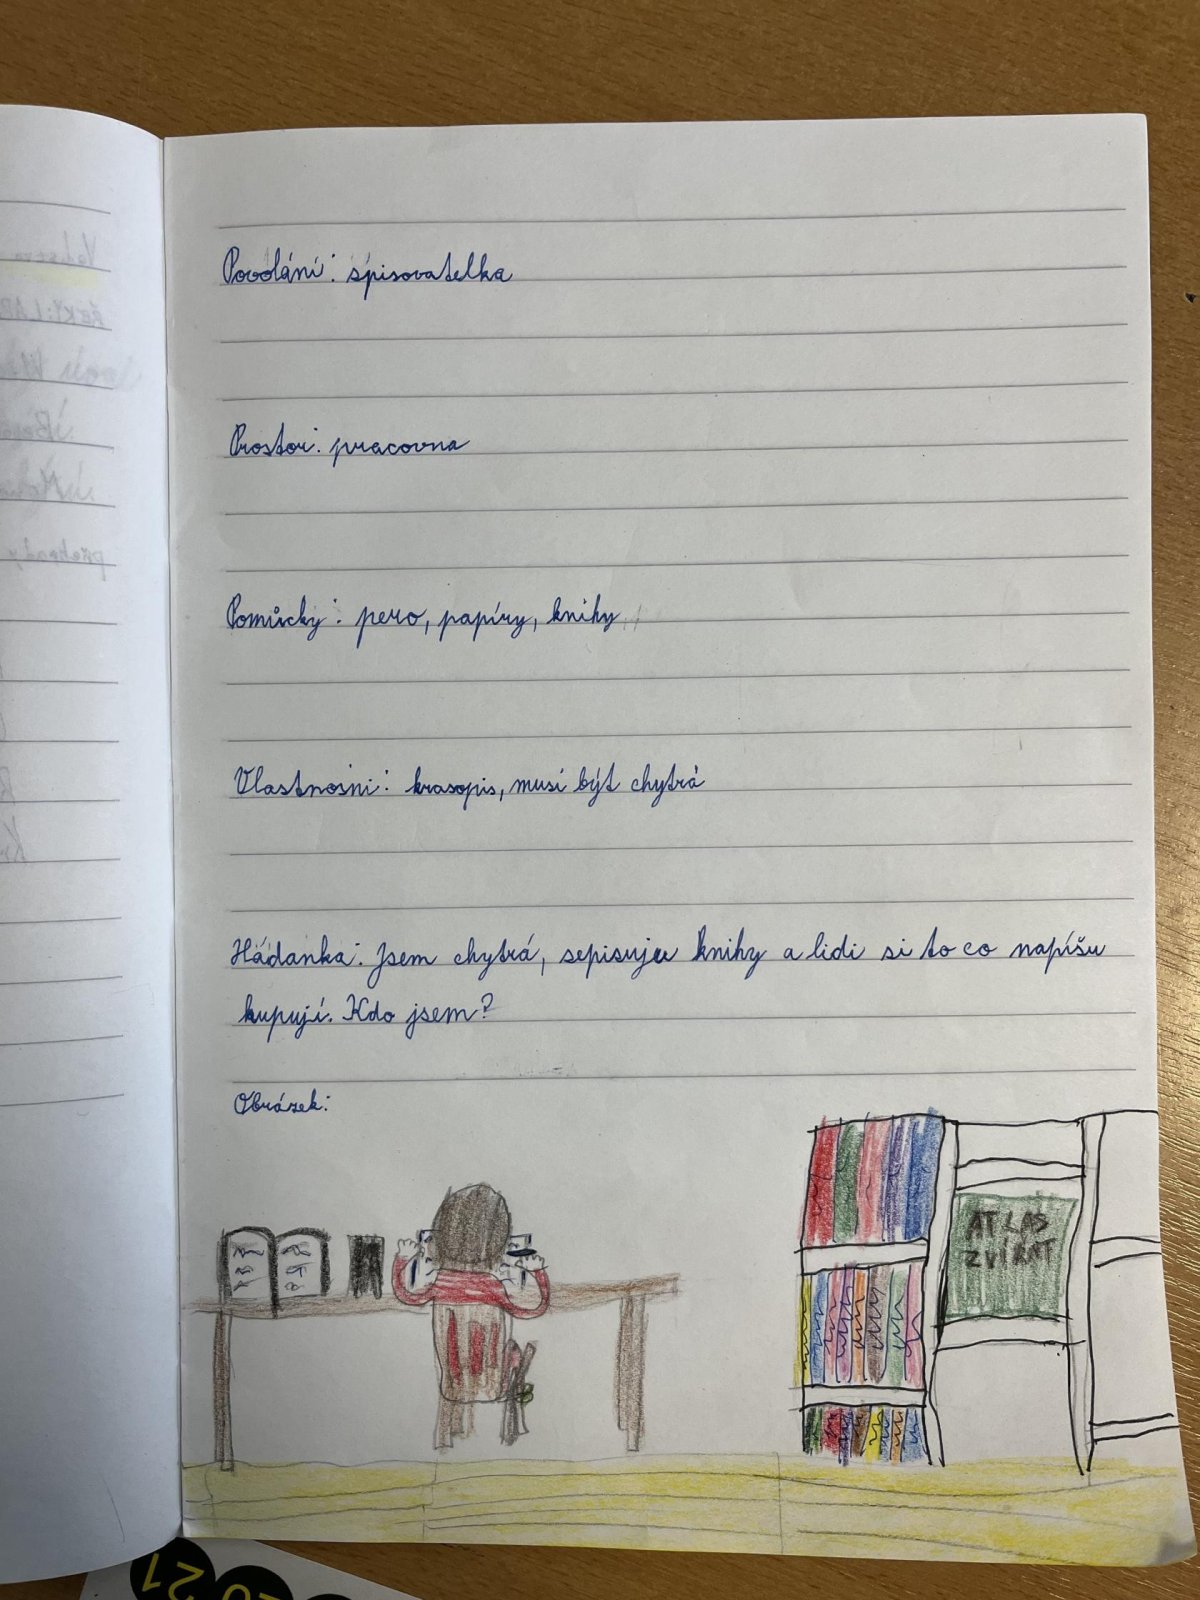 Povolání: spisovatelka
Prostor: pracovna
Pomůcky: pero, papíry, knihy
Vlastnosni: krasopis, musí být chytrá
Hádanka: Jsem chytrá, sepisuju knihy a lidi si to co napíšu
kupují. Kdo jsem?
Obrázek:
ATLAS
ZVÍŘAT
20 21